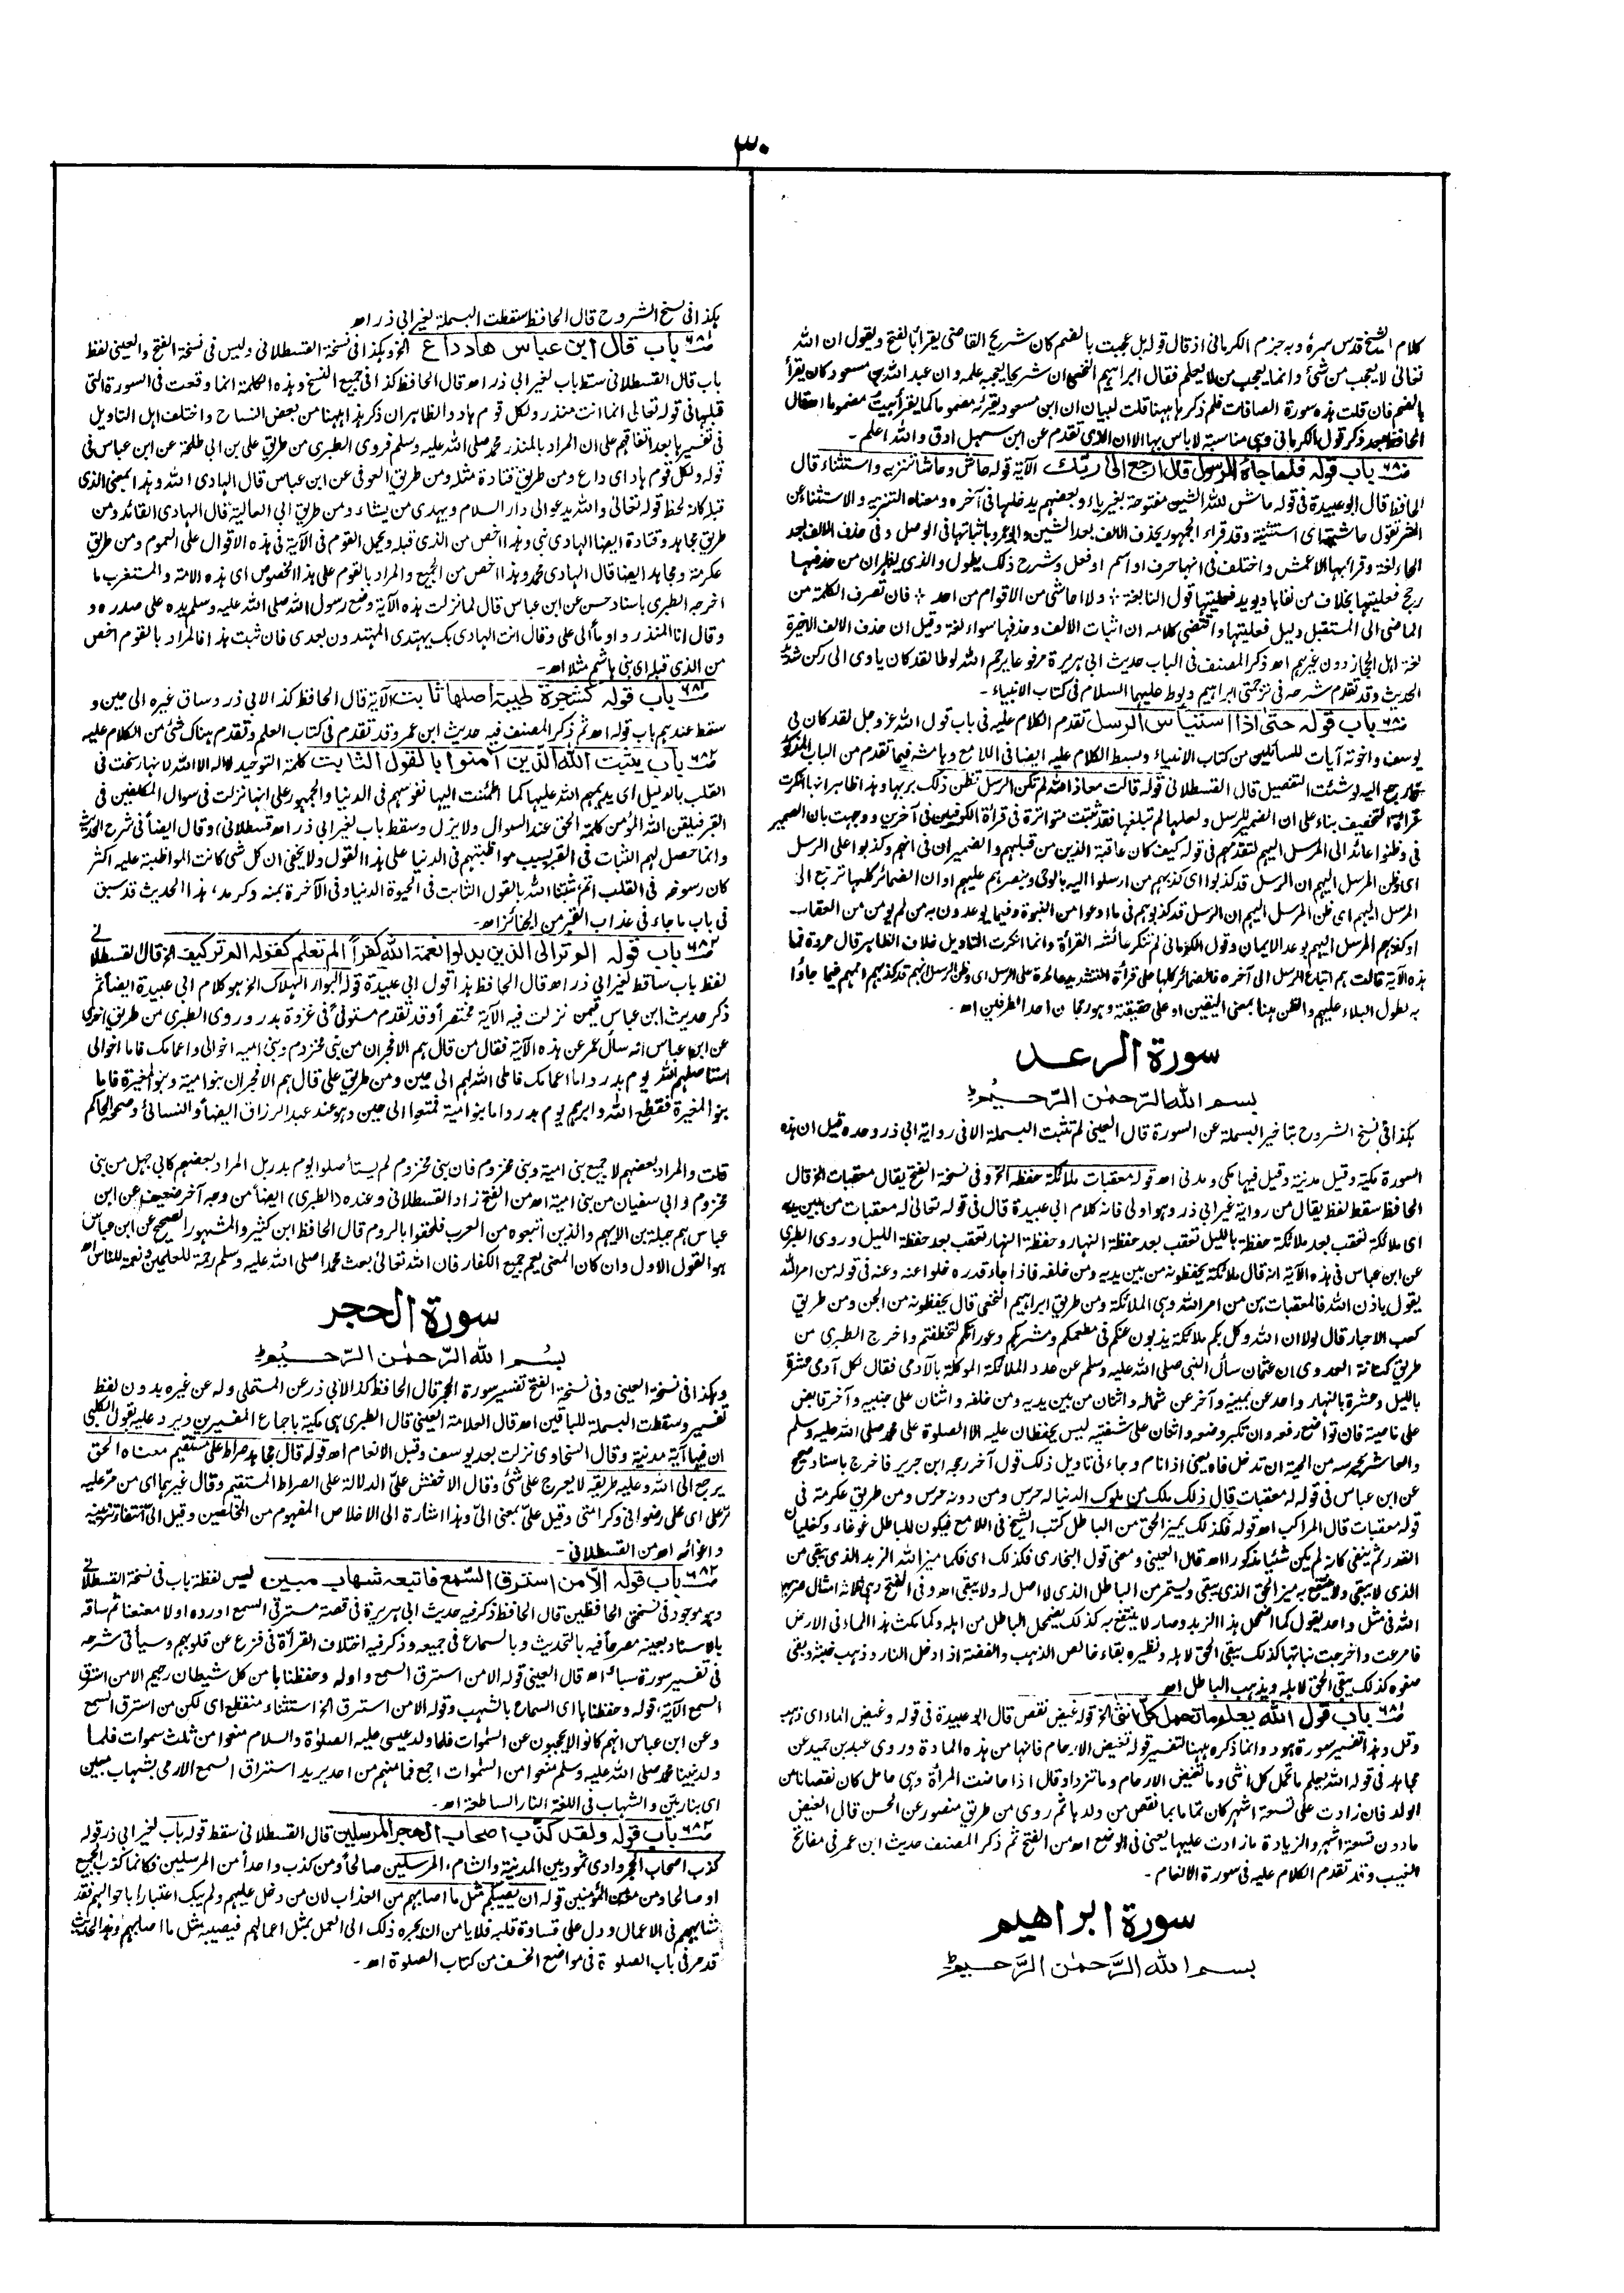 ٣٠
كلام الشيخ قدس سره وبه جزم الكرماني اذ قال قوله بل عجبت بالضم كان شريح القاضي يقرأ بالفتح ويقول ان الله
تعالى لا يعجب من شيء وانما يعجب من لا يعلم فقال ابراهيم النخعي ان شريحا يعجبه علمه وان عبد الله بن مسعود كان يقرأ
بالضم فان قلت هذه سورة الصافات فلم ذكرها ههنا قلت لبيان ان ابن مسعود يقرئه مضموما كما يقرأ هيت مضموما اه قال
الحافظ بعد ذكر قول الكرماني وهي مناسبة لا بأس بها الا ان الذي تقدم عن ابن سهل ادق والله اعلم ـ
باب قوله فلما جاءه الرسول قال ارجع الى ربك الآية قوله حاش وحاشا تنزيه واستثناء قال
الحافظ قال ابو عبيدة في قوله حاش لله الشين مفتوحة بغير ياء وبعضهم يدخلها في آخره ومعناه التنزيه والاستثناء عن
الشر تقول حاشيته اى استثنيته وقد قراء الجمهور بحذف الالف بعد الشين وابو عمرو باثباتها في الوصل وفي حذف الالف بعد
الحاء لغة وقرأ بها الاعمش واختلف في انها حرف او اسم او فعل وشرح ذلك يطول والذي يظهر ان من حذفها
رجح فعليتها بخلاف من نفاها ويؤيد فعليتها قول النابغة ؞ ولا احاشى من الاقوام من احد ؞ فان تصرف الكلمة من
الماضى الى المستقبل دليل فعليتها واقتضى كلامه ان اثبات الالف وحذفها سواء لغة وقيل ان حذف الالف الاخيرة
لغة اهل الحجاز دون غيرهم اه ذكر المصنف فى الباب حديث ابى هريرة مرفوعا يرحم الله لوطا لقد كان ياوى الى ركن شديد
الحديث وقد تقدم شرحه فى ترجمتى ابراهيم ولوط عليهما السلام فى كتاب الانبياء ـ
باب قوله حتى اذا استيأس الرسل تقدم الكلام عليه فى باب قول الله عز وجل لقد كان فى
يوسف واخوته آيات للسائلين من كتاب الانبياء وبسط الكلام عليه ايضا فى اللامع وهامشه فيما تقدم من الباب المذكور
فارجع اليه لو شئت التفصيل قال القسطلانى قوله قالت معاذ الله لم تكن الرسل تظن ذلك بربها وهذا ظاهر انها انكرت
قراءة التخفيف بناء على ان الضمير للرسل ولعلها لم تبلغها فقد ثبتت متواترة فى قراءة الكوفيين فى آخرين ووجهت بان الضمير
فى وظنوا عائد الى المرسل اليهم لتقدمهم فى قوله كيف كان عاقبة الذين من قبلهم والضميران فى انهم وكذبوا على الرسل
اى وظن المرسل اليهم ان الرسل قد كذبوا اى كذبهم من ارسلوا اليه بالوحى وبنصرهم عليهم او ان الضمائر كلها ترجع الى
المرسل اليهم اى ظن المرسل اليهم ان الرسل قد كذبوهم فى ما ادعوا من النبوة وفيما يوعدون به من لم يومن من العقاب
او كذبهم المرسل اليهم بوعد الايمان وقول الكرمانى لم تنكر عائشة القراءة وانما انكرت التاويل خلاف الظاهر قال عروة فما
هذه الآية قالت هم اتباع الرسل الى آخره فالضمائر كلها على قراءة التشديد عائدة على الرسل اى وظن الرسل انهم قد كذبهم اممهم فيما جاؤا
به لطول البلاء عليهم والظن هنا بمعنى اليقين او على حقيقته وهو رجحان احد الطرفين اه ـ
سورة الرعد
بسم الله الرحمن الرحيم
هكذا فى نسخ الشروح بتاخير البسملة عن السورة قال العينى لم تثبت البسملة الا فى رواية ابى ذر وحده قيل ان هذه
السورة مكية وقيل مدنية وقيل فيها مكى ومدنى اه قوله معقبات ملائكة حفظة الخ وفى نسخة الفتح يقال معقبات الخ قال
الحافظ سقط لفظ يقال من رواية غير ابى ذر وهو اولى فانه كلام ابى عبيدة قال فى قوله تعالى له معقبات من بين يديه
اى ملائكة تعقب بعد ملائكة حفظة بالليل تعقب بعد حفظة النهار وحفظة النهار تعقب بعد حفظة الليل وروى الطبرى
عن ابن عباس فى هذه الآية انه قال ملائكة يحفظونه من بين يديه ومن خلفه فاذا جاء قدره خلوا عنه وعنه فى قوله من امر الله
يقول باذن الله فالمعقبات هن من امر الله وهى الملائكة ومن طريق ابراهيم النخعى قال يحفظونه من الجن ومن طريق
كعب الاحبار قال لولا ان الله وكل بكم ملائكة يذبون عنكم فى مطعمكم ومشربكم وعوراتكم لتخطفتم واخرج الطبرى من
طريق كنانة العدوى ان عثمان سأل النبى صلى الله عليه وسلم عن عدد الملائكة الموكلة بالآدمى فقال لكل آدمى عشرة
بالليل وعشرة بالنهار واحد عن يمينه وآخر عن شماله واثنان من بين يديه ومن خلفه واثنان على جنبيه وآخر قابض
على ناصيته فان تواضع رفعه وان تكبر وضعه واثنان على شفتيه ليس يحفظان عليه الا الصلوة على محمد صلى الله عليه وسلم
والعاشر يحرسه من الحية ان تدخل فاه يعنى اذا نام وجاء فى تاويل ذلك قول آخر رجحه ابن جرير فاخرج باسناد صحيح
عن ابن عباس فى قوله له معقبات قال ذلك ملك من ملوك الدنيا له حرس ومن دونه حرس ومن طريق عكرمة فى
قوله معقبات قال المراكب اه قوله فكذلك يميز الحق من الباطل كتب الشيخ فى اللامع فيكون للباطل غوغاء وكغليان
القدر ثم ينفى كانه لم يكن شيئا مذكورا اه قال العينى ومعنى قول البخارى فكذلك اى فكما ميز الله الزبد الذى يبقى من
الذى لا يبقى ولا ينتفع به ميز الحق الذى يبقى ويستمر من الباطل الذى لا اصل له ولا يبقى اه وفى الفتح هى ثلاثة امثال ضربها
الله فى مثل واحد يقول كما اضمحل هذا الزبد وصار لا ينتفع به كذلك يضمحل الباطل من اهله وكما مكث هذا الماء فى الارض
فامرعت واخرجت نباتها كذلك يبقى الحق لاهله ونظيره بقاء خالص الذهب والفضة اذا دخل النار وذهب خبثه وبقى
صفوه كذلك يبقى الحق لاهله ويذهب الباطل اه
باب قول الله يعلم ما تحمل كل انثى الخ قوله غيض نقص قال ابو عبيدة فى قوله وغيض الماء اى ذهب
وقل وهذا تفسير سورة هود وانما ذكره ههنا لتفسير قوله تغيض الارحام فانها من هذه المادة وروى عبد بن حميد عن
مجاهد فى قوله الله يعلم ما تحمل كل انثى وما تغيض الارحام وما تزداد قال اذا حاضت المرأة وهى حامل كان نقصانا من
الولد فان زادت على تسعة اشهر كان تماما بما نقص من ولدها ثم روى من طريق منصور عن الحسن قال الغيض
مادون تسعة اشهر والزيادة مازادت عليها يعنى فى الوضع اه من الفتح ثم ذكر المصنف حديث ابن عمر فى مفاتح
الغيب وقد تقدم الكلام عليه فى سورة الانعام ـ
سورة ابراهيم
بسم الله الرحمن الرحيم
هكذا فى نسخ الشروح قال الحافظ سقطت البسملة لغير ابى ذر اه
باب قال ابن عباس هاد داع الخ وهكذا فى نسخة القسطلانى وليس فى نسخة الفتح والعينى لفظ
باب قال القسطلانى سقط باب لغير ابى ذر اه قال الحافظ كذا فى جميع النسخ وهذه الكلمة انما وقعت فى السورة التى
قبلها فى قوله تعالى انما انت منذر ولكل قوم هاد والظاهر ان ذكر هذا ههنا من بعض النساخ واختلف اهل التاويل
فى تفسيرها بعد اتفاقهم على ان المراد بالمنذر محمد صلى الله عليه وسلم فروى الطبرى من طريق على بن ابى طلحة عن ابن عباس فى
قوله ولكل قوم هاد اى داع ومن طريق قتادة مثله ومن طريق العوفى عن ابن عباس قال الهادى الله وهذا بمعنى الذى
قبله كانه لحظ قوله تعالى والله يدعو الى دار السلام ويهدى من يشاء ومن طريق ابى العالية قال الهادى القائد ومن
طريق مجاهد وقتادة ايضا الهادى نبى وهذا اخص من الذى قبله ويحمل القوم فى الآية فى هذه الاقوال على العموم ومن طريق
عكرمة ومجاهد ايضا قال الهادى محمد وهذا اخص من الجميع والمراد بالقوم على هذا الخصوص اى هذه الامة والمستغرب ما
اخرجه الطبرى باسناد حسن عن ابن عباس قال لما نزلت هذه الآية وضع رسول الله صلى الله عليه وسلم يده على صدره و
وقال انا المنذر واومأ الى على وقال انت الهادى بك يهتدى المهتدون بعدى فان ثبت هذا فالمراد بالقوم اخص
من الذى قبله اى بنى هاشم مثلا اه ـ
باب قوله كشجرة طيبة اصلها ثابت الآية قال الحافظ كذا لابى ذر وساق غيره الى حين و
سقط عندهم باب قوله اه ثم ذكر المصنف فيه حديث ابن عمر وقد تقدم فى كتاب العلم وتقدم هناك شئ من الكلام عليه
باب يثبت الله الذين آمنوا بالقول الثابت كلمة التوحيد لا اله الا الله لانها رسخت فى
القلب بالدليل اى يديمهم الله عليها كما اطمئنت اليها نفوسهم فى الدنيا والجمهور على انها نزلت فى سوال المكلفين فى
القبر فيلقن الله المؤمن كلمة الحق عند السوال ولا يزل وسقط باب لغير ابى ذر اه قسطلانى، وقال ايضا فى شرح الحديث
وانما حصل لهم الثبات فى القبر بسبب مواظبتهم فى الدنيا على هذا القول ولا يخفى ان كل شئ كانت المواظبة عليه اكثر
كان رسوخه فى القلب اتم ثبتنا الله بالقول الثابت فى الحيوة الدنيا وفى الآخرة بمنه وكرمه، هذا الحديث قد سبق
فى باب ما جاء فى عذاب القبر من الجنائز اه ـ
باب قوله الم تر الى الذين بدلوا نعمة الله كفرا الم تعلم كقوله الم تر كيف الخ قال القسطلانى
لفظ باب ساقط لغير ابى ذر اه قال الحافظ هذا قول ابى عبيدة قوله البوار الهلاك الخ هو كلام ابى عبيدة ايضا ثم
ذكر حديث ابن عباس فيمن نزلت فيه الآية مختصرا وقد تقدم مستوفى فى غزوة بدر وروى الطبرى من طريق اخرى
عن ابن عباس انه سأل عمر عن هذه الآية فقال من قال هم الافجران من بنى مخزوم وبنى امية اخوالى واعمامك فاما اخوالى
فاستاصلهم الله يوم بدر واما اعمامك فاملى الله لهم الى حين ومن طريق على قال هم الافجران بنو امية وبنو المغيرة فاما
بنو المغيرة فقطع الله دابرهم يوم بدر واما بنو امية فمتعوا الى حين وهو عند عبد الرزاق ايضا والنسائى وصححه الحاكم
قلت والمراد بعضهم لا جميع بنى امية وبنى مخزوم فان بنى مخزوم لم يستأصلوا يوم بدر بل المراد بعضهم كابى جهل من بنى
مخزوم وابى سفيان من بنى امية اه من الفتح زاد القسطلانى وعنده (الطبرى) ايضا من وجه آخر ضعيف عن ابن
عباس هم جبلة بن الايهم والذين اتبعوه من العرب فلحقوا بالروم قال الحافظ ابن كثير والمشهور الصحيح عن ابن عباس
هو القول الاول وان كان المعنى يعم جميع الكفار فان الله تعالى بعث محمدا صلى الله عليه وسلم رحمة للعلمين ونعمة للناس اه
سورة الحجر
بسم الله الرحمن الرحيم
وهكذا فى نسخة العينى وفى نسخة الفتح تفسير سورة الحجر قال الحافظ كذا لابى ذر عن المستملى وله عن غيره بدون لفظ
تفسير وسقطت البسملة للباقين اه قال العلامة العينى قال الطبرى هى مكية باجماع المفسرين ويرد عليه بقول الكلبى
ان فيها آية مدنية وقال السخاوى نزلت بعد يوسف وقبل الانعام اه قوله قال مجاهد صراط على مستقيم معناه الحق
يرجع الى الله وعليه طريقه لا يعرج على شئ وقال الاخفش على الدلالة على الصراط المستقيم وقال غيرهما اى من مر عليه
مر على اى على رضوانى وكرامتى وقيل على بمعنى الى وهذا اشارة الى الاخلاص المفهوم من المخلصين وقيل الى انتفاء تزيينه
واغوائه اه من القسطلانى ـ
باب قوله الا من استرق السمع فاتبعه شهاب مبين ليس لفظة باب فى نسخة القسطلانى
وهو موجود فى نسختى الحافظين قال الحافظ ذكر فيه حديث ابى هريرة فى قصة مسترقى السمع اورده اولا معنعنا ثم ساقه
بالاسناد بعينه مصرحا فيه بالتحديث وبالسماع فى جميعه وذكر فيه اختلاف القرأة فى فزع عن قلوبهم وسيأتى شرحه
فى تفسير سورة سباء اه قال العينى قوله الا من استرق السمع واوله وحفظناها من كل شيطان رجيم الا من استرق
السمع الآية، قوله وحفظناها اى السماء بالشهب وقوله الا من استرق الخ استثناء منقطع اى لكن من استرق السمع
وعن ابن عباس انهم كانوا لا يحجبون عن السموات فلما ولد عيسى عليه الصلوة والسلام منعوا من ثلث سموات فلما
ولد نبينا محمد صلى الله عليه وسلم منعوا من السموات اجمع فما منهم من احد يريد استراق السمع الا رمى بشهاب مبين
اى بنار بين والشهاب فى اللغة النار الساطعة اه ـ
باب قوله ولقد كذب اصحاب الحجر المرسلين قال القسطلانى سقط قوله باب لغير ابى ذر قوله
كذب اصحاب الحجر وادى ثمود بين المدينة والشام، المرسلين صالحا ومن كذب واحدا من المرسلين فكانما كذب الجميع
او صالحا ومن معه من المؤمنين قوله ان يصيبكم مثل ما اصابهم من العذاب لان من دخل عليهم ولم يبك اعتبارا باحوالهم فقد
شابههم فى الاعمال ودل على قساوة قلبه فلا يامن ان يجره ذلك الى العمل بمثل اعمالهم فيصيبه مثل ما اصابهم وهذا الحديث
قد مر فى باب الصلوة فى مواضع الخسف من كتاب الصلوة اه ـ